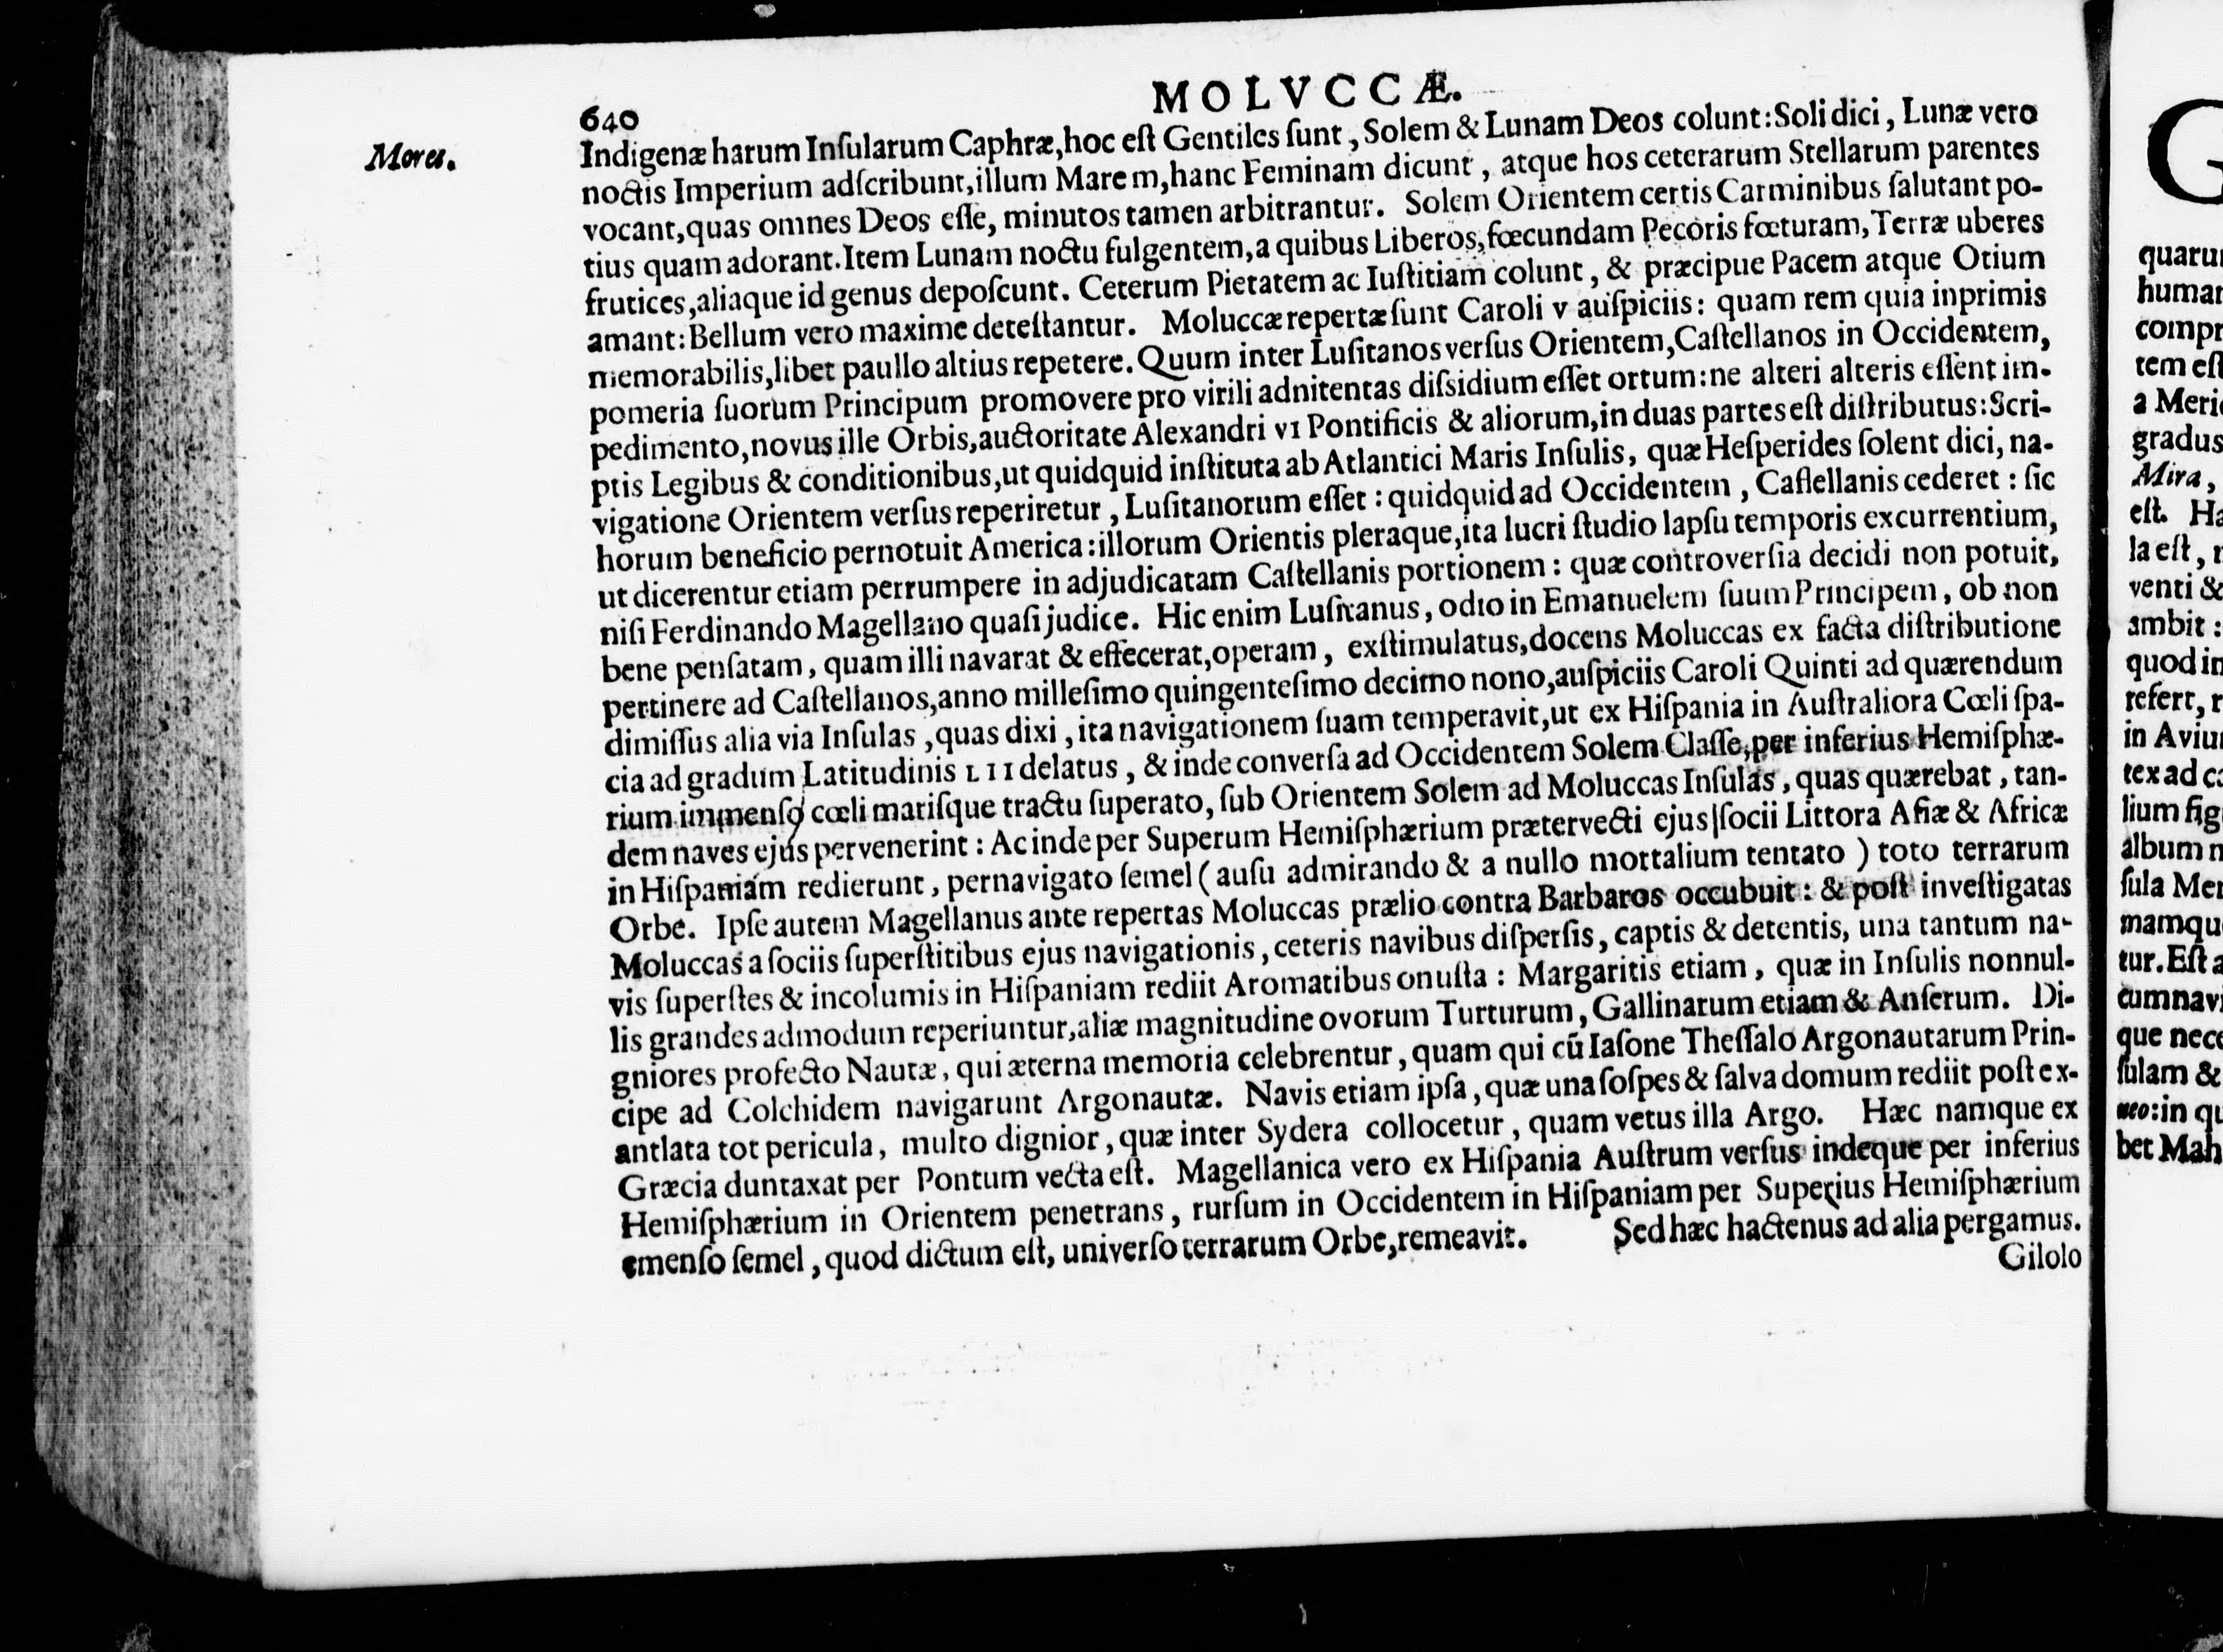 MOLVCCÆ.
640
Mores.
Indigenæ harum Inſularum Caphræ, hoc eſt Gentiles ſunt, Solem & Lunam Deos colunt: Soli dici, Lunæ vero
noctis Imperium adſcribunt, illum Marem, hanc Feminam dicunt, atque hos ceterarum Stellarum parentes
vocant, quas omnes Deos eſſe, minutos tamen arbitrantur. Solem Orientem certis Carminibus ſalutant po-
tius quam adorant. Item Lunam noctu fulgentem, a quibus Liberos, fœcundam Pecoris fœturam, Terræ uberes
frutices, aliaque id genus depoſcunt. Ceterum Pietatem ac Iuſtitiam colunt, & præcipue Pacem atque Otium
amant: Bellum vero maxime deteſtantur. Moluccæ repertæ ſunt Caroli v auſpiciis: quam rem quia inprimis
memorabilis, libet paullo altius repetere. Quum inter Luſitanos verſus Orientem, Caſtellanos in Occidentem,
pomeria ſuorum Principum promovere pro virili adnitentas diſsidium eſſet ortum: ne alteri alteris eſſent im-
pedimento, novus ille Orbis, auctoritate Alexandri vi Pontificis & aliorum, in duas partes eſt diſtributus: Scri-
ptis Legibus & conditionibus, ut quidquid inſtituta ab Atlantici Maris Inſulis, quæ Heſperides ſolent dici, na-
vigatione Orientem verſus reperiretur, Luſitanorum eſſet: quidquid ad Occidentem, Caſtellanis cederet: ſic
horum beneficio pernotuit America: illorum Orientis pleraque, ita lucri ſtudio lapſu temporis excurrentium,
ut dicerentur etiam perrumpere in adjudicatam Caſtellanis portionem: quæ controverſia decidi non potuit,
niſi Ferdinando Magellano quaſi judice. Hic enim Luſitanus, odio in Emanuelem ſuum Principem, ob non
bene penſatam, quam illi navarat & effecerat, operam, exſtimulatus, docens Moluccas ex facta diſtributione
pertinere ad Caſtellanos, anno milleſimo quingenteſimo decimo nono, auſpiciis Caroli Quinti ad quærendum
dimiſſus alia via Inſulas, quas dixi, ita navigationem ſuam temperavit, ut ex Hiſpania in Auſtraliora Cœli ſpa-
cia ad gradum Latitudinis LII delatus, & inde converſa ad Occidentem Solem Claſſe, per inferius Hemiſphæ-
rium immenſo cœli mariſque tractu ſuperato, ſub Orientem Solem ad Moluccas Inſulas, quas quærebat, tan-
dem naves ejus pervenerint: Ac inde per Superum Hemiſphærium prætervecti ejus ſocii Littora Aſiæ & Africæ
in Hiſpaniam redierunt, pernavigato ſemel (auſu admirando & a nullo mortalium tentato) toto terrarum
Orbe. Ipſe autem Magellanus ante repertas Moluccas prælio contra Barbaros occubuit: & poſt inveſtigatas
Moluccas a ſociis ſuperſtitibus ejus navigationis, ceteris navibus diſperſis, captis & detentis, una tantum na-
vis ſuperſtes & incolumis in Hiſpaniam rediit Aromatibus onuſta: Margaritis etiam, quæ in Inſulis nonnul-
lis grandes admodum reperiuntur, aliæ magnitudine ovorum Turturum, Gallinarum etiam & Anſerum. Di-
gniores profecto Nautæ, qui æterna memoria celebrentur, quam qui cū Iaſone Theſſalo Argonautarum Prin-
cipe ad Colchidem navigarunt Argonautæ. Navis etiam ipſa, quæ una ſoſpes & ſalva domum rediit poſt ex-
antlata tot pericula, multo dignior, quæ inter Sydera collocetur, quam vetus illa Argo. Hæc namque ex
Græcia duntaxat per Pontum vecta eſt. Magellanica vero ex Hiſpania Auſtrum verſus indeque per inferius
Hemiſphærium in Orientem penetrans, rurſum in Occidentem in Hiſpaniam per Superius Hemiſphærium
emenſo ſemel, quod dictum eſt, univerſo terrarum Orbe, remeavit. Sed hæc hactenus ad alia pergamus.
Gilolo
G
quaru
human
compr
tem eſt
a Meri
gradus
Mira,
eſt. Ha
la eſt,
venti &
ambit:
quod in
refert,
in Aviu
tex ad c
lium fig
album
ſula Mer
mamqu
tur. Eſt a
cumnavi
que nece
ſulam &
neo: in qu
bet Mah